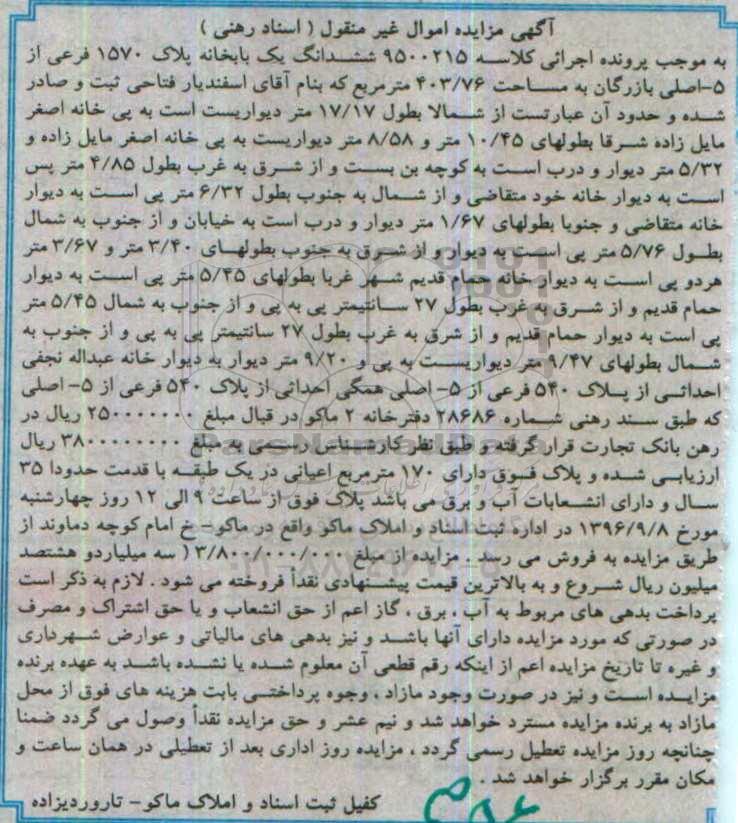 آگهی مزایده اموال غیر منقول ( اسناد رهنی )
به موجب پرونده اجرائی کلاسه ۹۵۰۰۲۱۵ ششدانگ یک بابخانه پلاک ۱۵۷۰ فرعی از
۵-اصلی بازرگان به مساحت ۴۰۳/۷۶ مترمربع که بنام آقای اسفندیار فتاحی ثبت و صادر
شده و حدود آن عبارتست از شمالا بطول ۱۷/۱۷ متر دیواریست است به پی خانه اصغر
مایل زاده شرقا بطولهای ۱۰/۴۵ متر و ۸/۵۸ متر دیواریست به پی خانه اصغر مایل زاده و
۵/۳۲ متر دیوار و درب است به کوچه بن بست و از شرق به غرب بطول ۴/۸۵ متر پس
است به دیوار خانه خود متقاضی و از شمال به جنوب بطول ۶/۳۲ متر پی است به دیوار
خانه متقاضی و جنوبا بطولهای ۱/۶۷ متر دیوار و درب است به خیابان و از جنوب به شمال
بطول ۵/۷۶ متر پی است به دیوار و از شرق به جنوب بطولهای ۳/۴۰ متر و ۳/۶۷ متر
هردو پی است به دیوار خانه حمام قدیم شهر غربا بطولهای ۵/۴۵ متر پی است به دیوار
حمام قدیم و از شرق به غرب بطول ۲۷ سانتیمتر پی به پی و از جنوب به شمال ۵/۴۵ متر
پی است به دیوار حمام قدیم و از شرق به غرب بطول ۲۷ سانتیمتر پی به پی و از جنوب به
شمال بطولهای ۹/۴۷ متر دیواریست به پی و ۹/۲۰ متر دیوار به دیوار خانه عبداله نجفی
احداثی از پلاک ۵۴۰ فرعی از ۵- اصلی همگی احداثی از پلاک ۵۴۰ فرعی از ۵- اصلی
که طبق سند رهنی شماره ۲۸۶۸۶ دفترخانه ۲ ماکو در قبال مبلغ ۲۵۰۰۰۰۰۰۰ ریال در
رهن بانک تجارت قرار گرفته و طبق نظر کارشناس رسمی به مبلغ ۳۸۰۰۰۰۰۰۰۰ ریال
ارزیابی شده و پلاک فوق دارای ۱۷۰ مترمربع اعیانی در یک طبقه با قدمت حدودا ۳۵
سال و دارای انشعابات آب و برق می باشد پلاک فوق از ساعت ۹ الی ۱۲ روز چهارشنبه
مورخ ۱۳۹۶/۹/۸ در اداره ثبت اسناد و املاک ماکو واقع در ماکو- خ امام کوچه دماوند از
طریق مزایده به فروش می رسد . مزایده از مبلغ ۳/۸۰۰/۰۰۰/۰۰۰ ( سه میلیاردو هشتصد
میلیون ریال شروع و به بالاترین قیمت پیشنهادی نقدا فروخته می شود . لازم به ذکر است
پرداخت بدهی های مربوط به آب ، برق ، گاز اعم از حق انشعاب و یا حق اشتراک و مصرف
در صورتی که مورد مزایده دارای آنها باشد و نیز بدهی های مالیاتی و عوارض شهرداری
و غیره تا تاریخ مزایده اعم از اینکه رقم قطعی آن معلوم شده یا نشده باشد به عهده برنده
مزایده است و نیز در صورت وجود مازاد ، وجوه پرداختی بابت هزینه های فوق از محل
مازاد به برنده مزایده مسترد خواهد شد و نیم عشر و حق مزایده نقدا وصول می گردد ضمنا
چنانچه روز مزایده تعطیل رسمی گردد ، مزایده روز اداری بعد از تعطیلی در همان ساعت و
مکان مقرر برگزار خواهد شد .
کفیل ثبت اسناد و املاک ماکو- تاروردیزاده
ParsNamadData